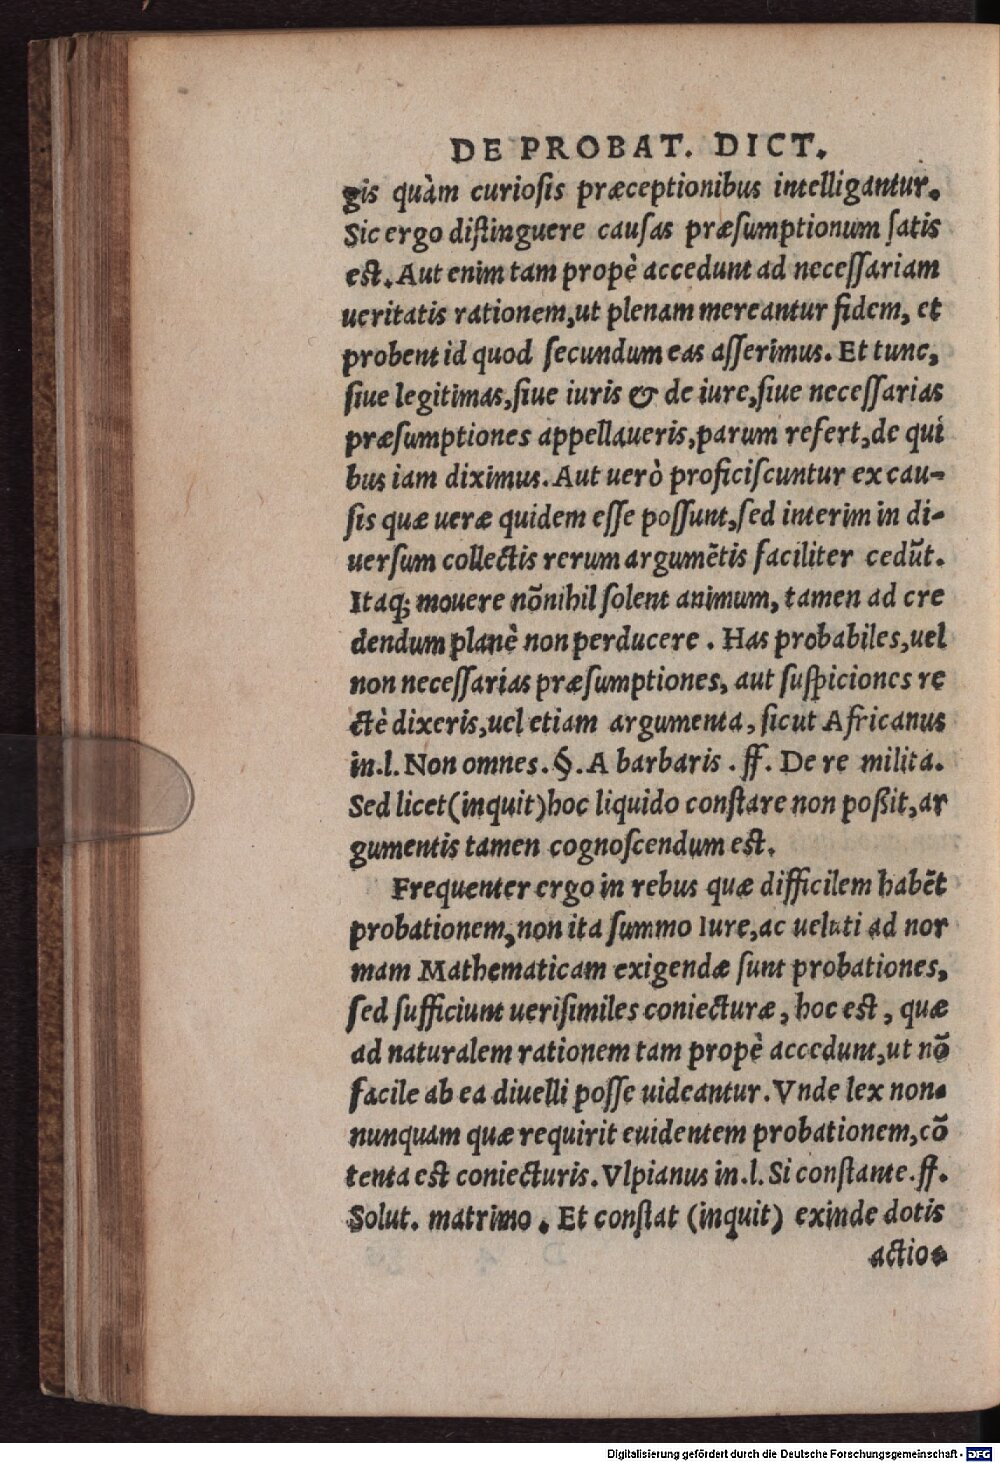 DE PROBAT. DICT.
gis quàm curiosis præceptionibus intelligantur.
Sic ergo distinguere causas præsumptionum satis
est. Aut enim tam propè accedunt ad necessariam
ueritatis rationem, ut plenam mereantur fidem, et
probent id quod secundum eas asserimus. Et tunc,
siue legitimas, siue iuris & de iure, siue necessarias
præsumptiones appellaueris, parum refert, de qui
bus iam diximus. Aut uerò proficiscuntur ex cau-
sis quæ ueræ quidem esse possunt, sed interim in di-
uersum collectis rerum argumẽtis faciliter cedũt.
Itaq; mouere nõnihil solent animum, tamen ad cre
dendum planè non perducere. Has probabiles, uel
non necessarias præsumptiones, aut suspiciones re
ctè dixeris, uel etiam argumenta, sicut Africanus
in.l. Non omnes. §. A barbaris. ff. De re milita.
Sed licet (inquit) hoc liquido constare non poßit, ar
gumentis tamen cognoscendum est.
Frequenter ergo in rebus quæ difficilem habẽt
probationem, non ita summo Iure, ac ueluti ad nor
mam Mathematicam exigendæ sunt probationes,
sed sufficiunt uerisimiles coniecturæ, hoc est, quæ
ad naturalem rationem tam propè accedunt, ut nõ
facile ab ea diuelli posse uideantur. Vnde lex non-
nunquam quæ requirit euidentem probationem, cõ
tenta est coniecturis. Vlpianus in.l. Si constante. ff.
Solut. matrimo. Et constat (inquit) exinde dotis
actio-
Digitalisierung gefördert durch die Deutsche Forschungsgemeinschaft - DFG